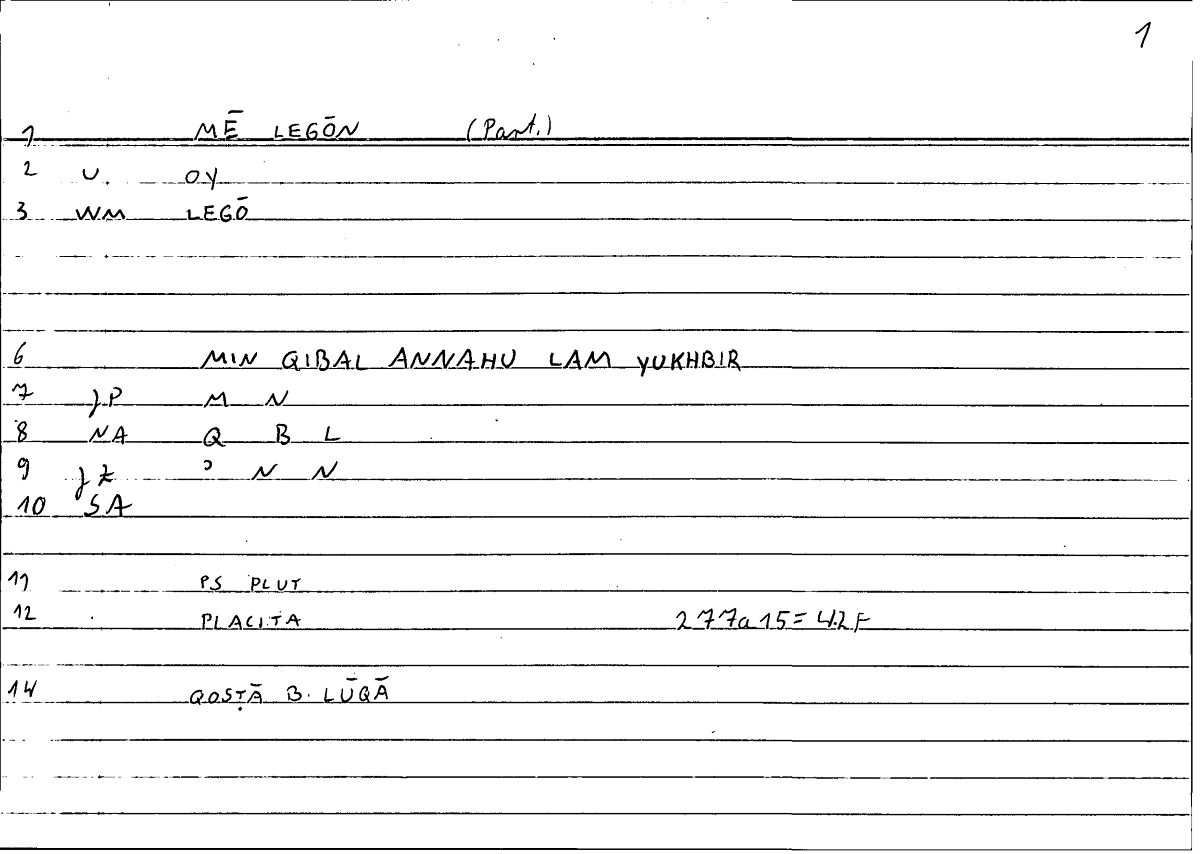 1
1 MĒ LEGŌN (Part.)
2 U. OY
3 WM LEGŌ
6 MIN QIBAL ANNAHU LAM YUKHBIR
7 JP M N
8 NA Q B L
9 JZ ʾ N N
10 SA
11 PS PLUT
12 PLACITA 277a15=4.2F
14 QOSṬĀ B. LŪQĀ